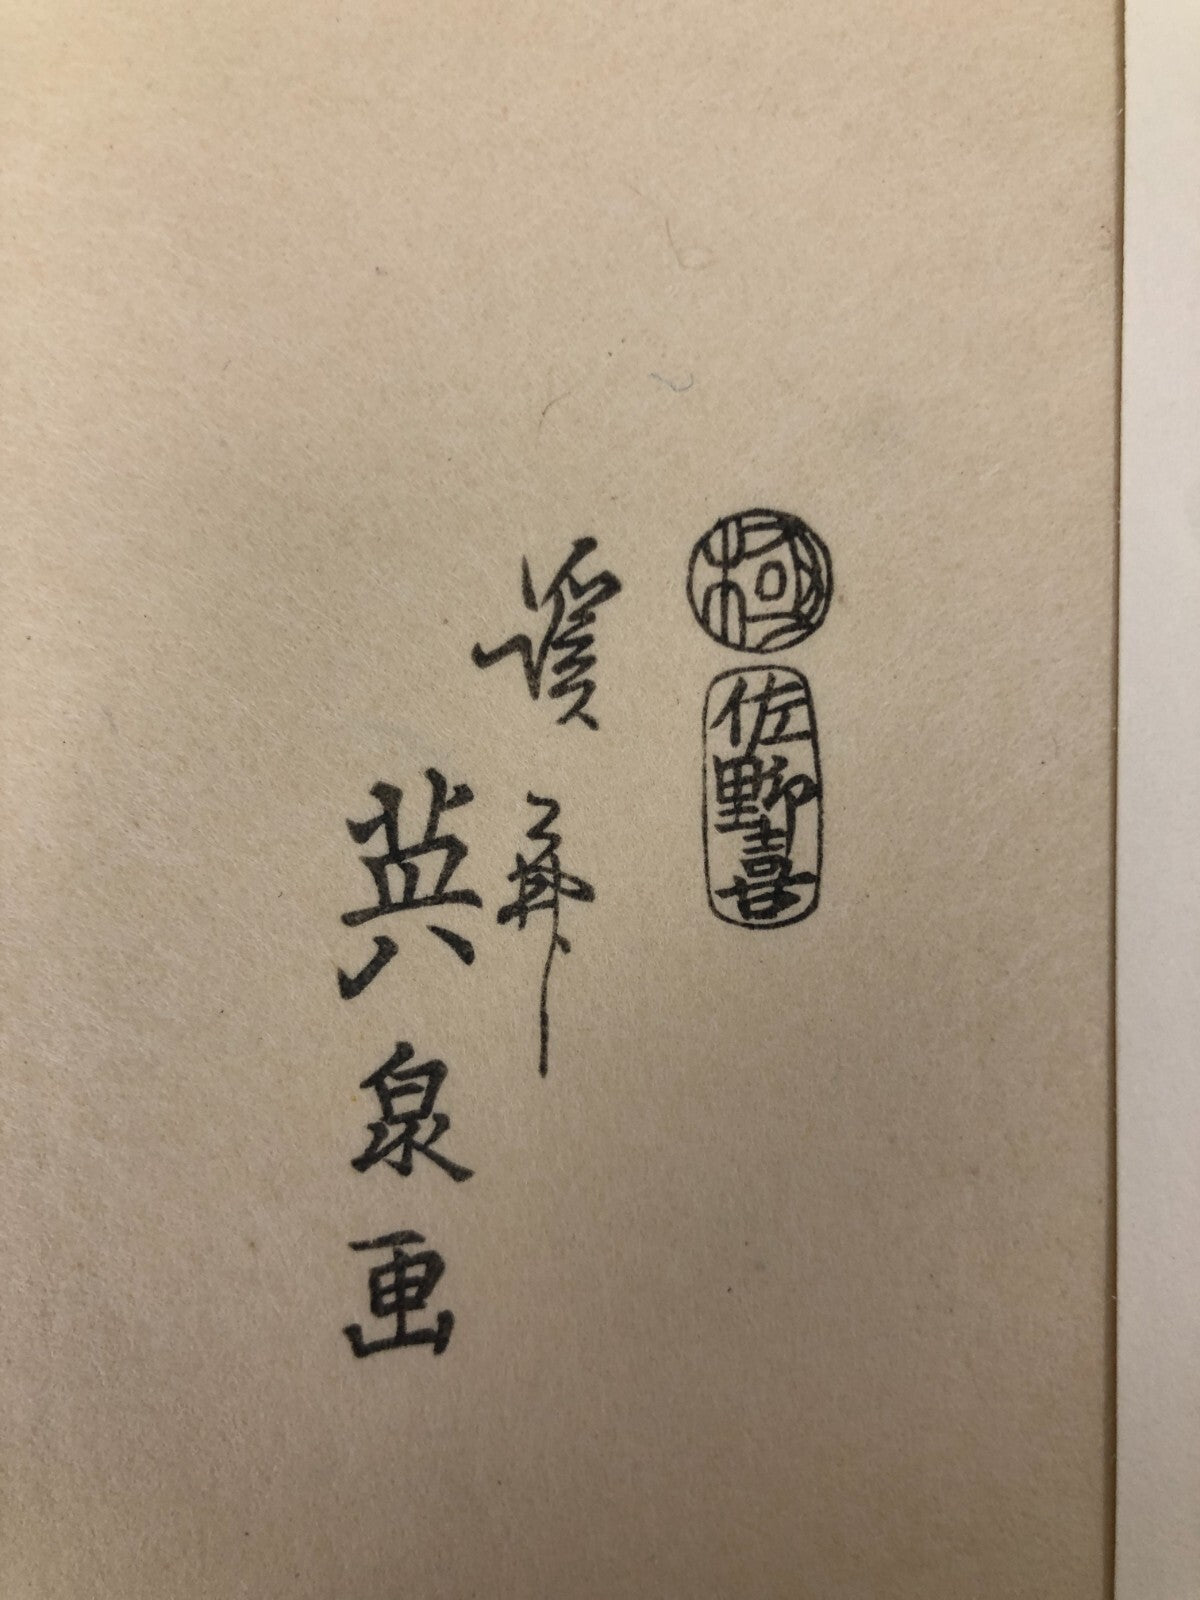 極
佐野喜
溪斎
英泉画